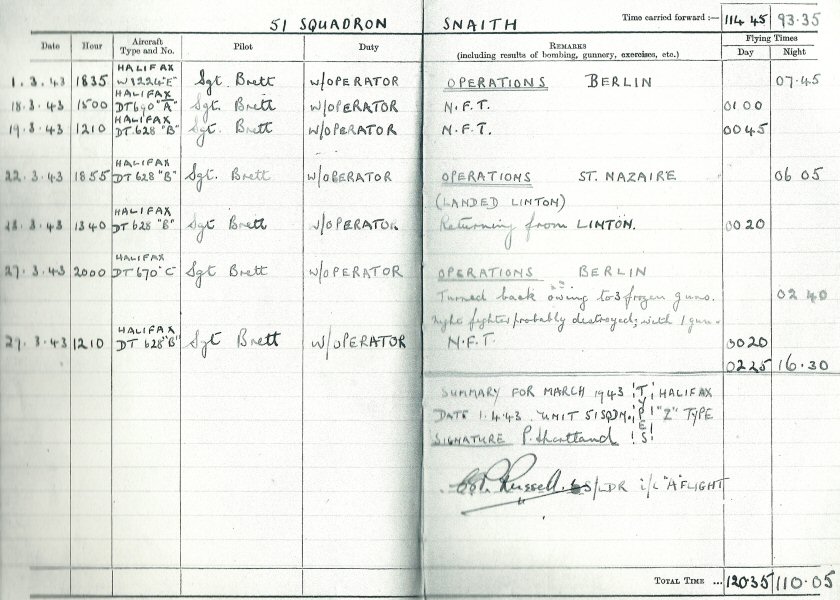 51 SQUADRON SNAITH Time carried forward :— 114 45 93·35
Date Hour Aircraft Type and No. Pilot Duty REMARKS (including results of bombing, gunnery, exercises, etc.) Flying Times Day Night
1.3.43 1835 HALIFAX W1224 "E" Sgt. Brett W/OPERATOR OPERATIONS BERLIN 07·45
18.3.43 1500 HALIFAX DT690 "A" Sgt. Brett W/OPERATOR N.F.T. 01 00
19.3.43 1210 HALIFAX DT.628 "B" Sgt. Brett W/OPERATOR N.F.T. 0045
22.3.43 1855 HALIFAX DT 628 "B" Sgt. Brett W/OPERATOR OPERATIONS ST. NAZAIRE 06 05
(LANDED LINTON)
1340 HALIFAX DT 628 "B" Sgt Brett W/OPERATOR Returning from LINTON. 0020
27.3.43 2000 HALIFAX DT670 "C" Sgt Brett W/OPERATOR OPERATIONS BERLIN
Turned back owing to 3 frozen guns. 02 40
Night fighter probably destroyed; with 1 gun.
1210 HALIFAX DT 628 "B" Sgt Brett W/OPERATOR N.F.T. 0020
0225 16·30
SUMMARY FOR MARCH 1943 TYPES HALIFAX
DATE 1.4.43. UNIT 51 SQDN. "Z" TYPE
SIGNATURE P. Shortland
Russell. S/LDR i/c "A" FLIGHT
TOTAL TIME ... 12035 110·05